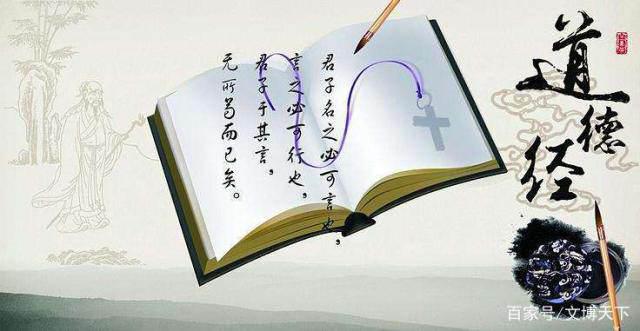 道德经
君子名之必可言也,
言之必可行也,
君子于其言,
无所苟而已矣。
百家号/文博天下